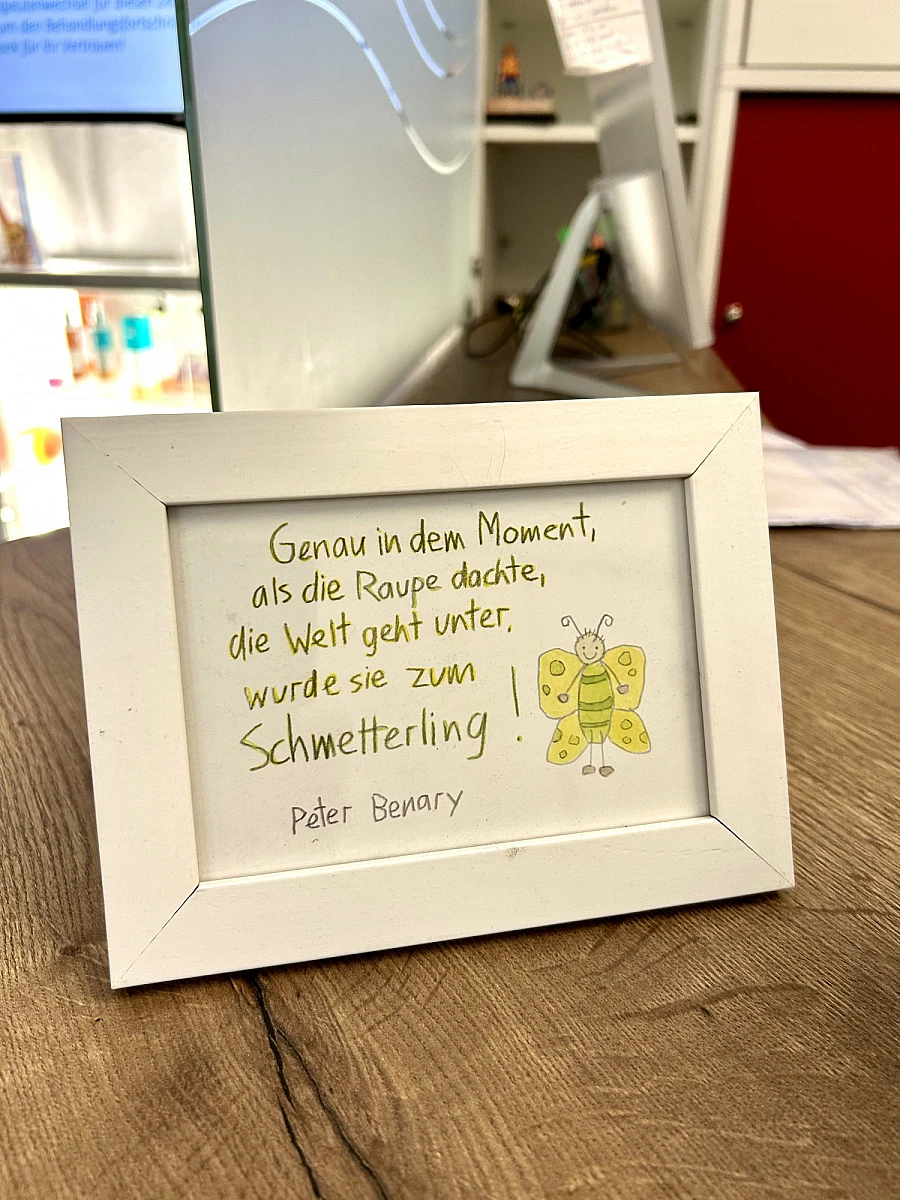 um den Behandlungsfortschritt
Genau in dem Moment,
als die Raupe dachte,
die Welt geht unter,
wurde sie zum
Schmetterling!
Peter Benary